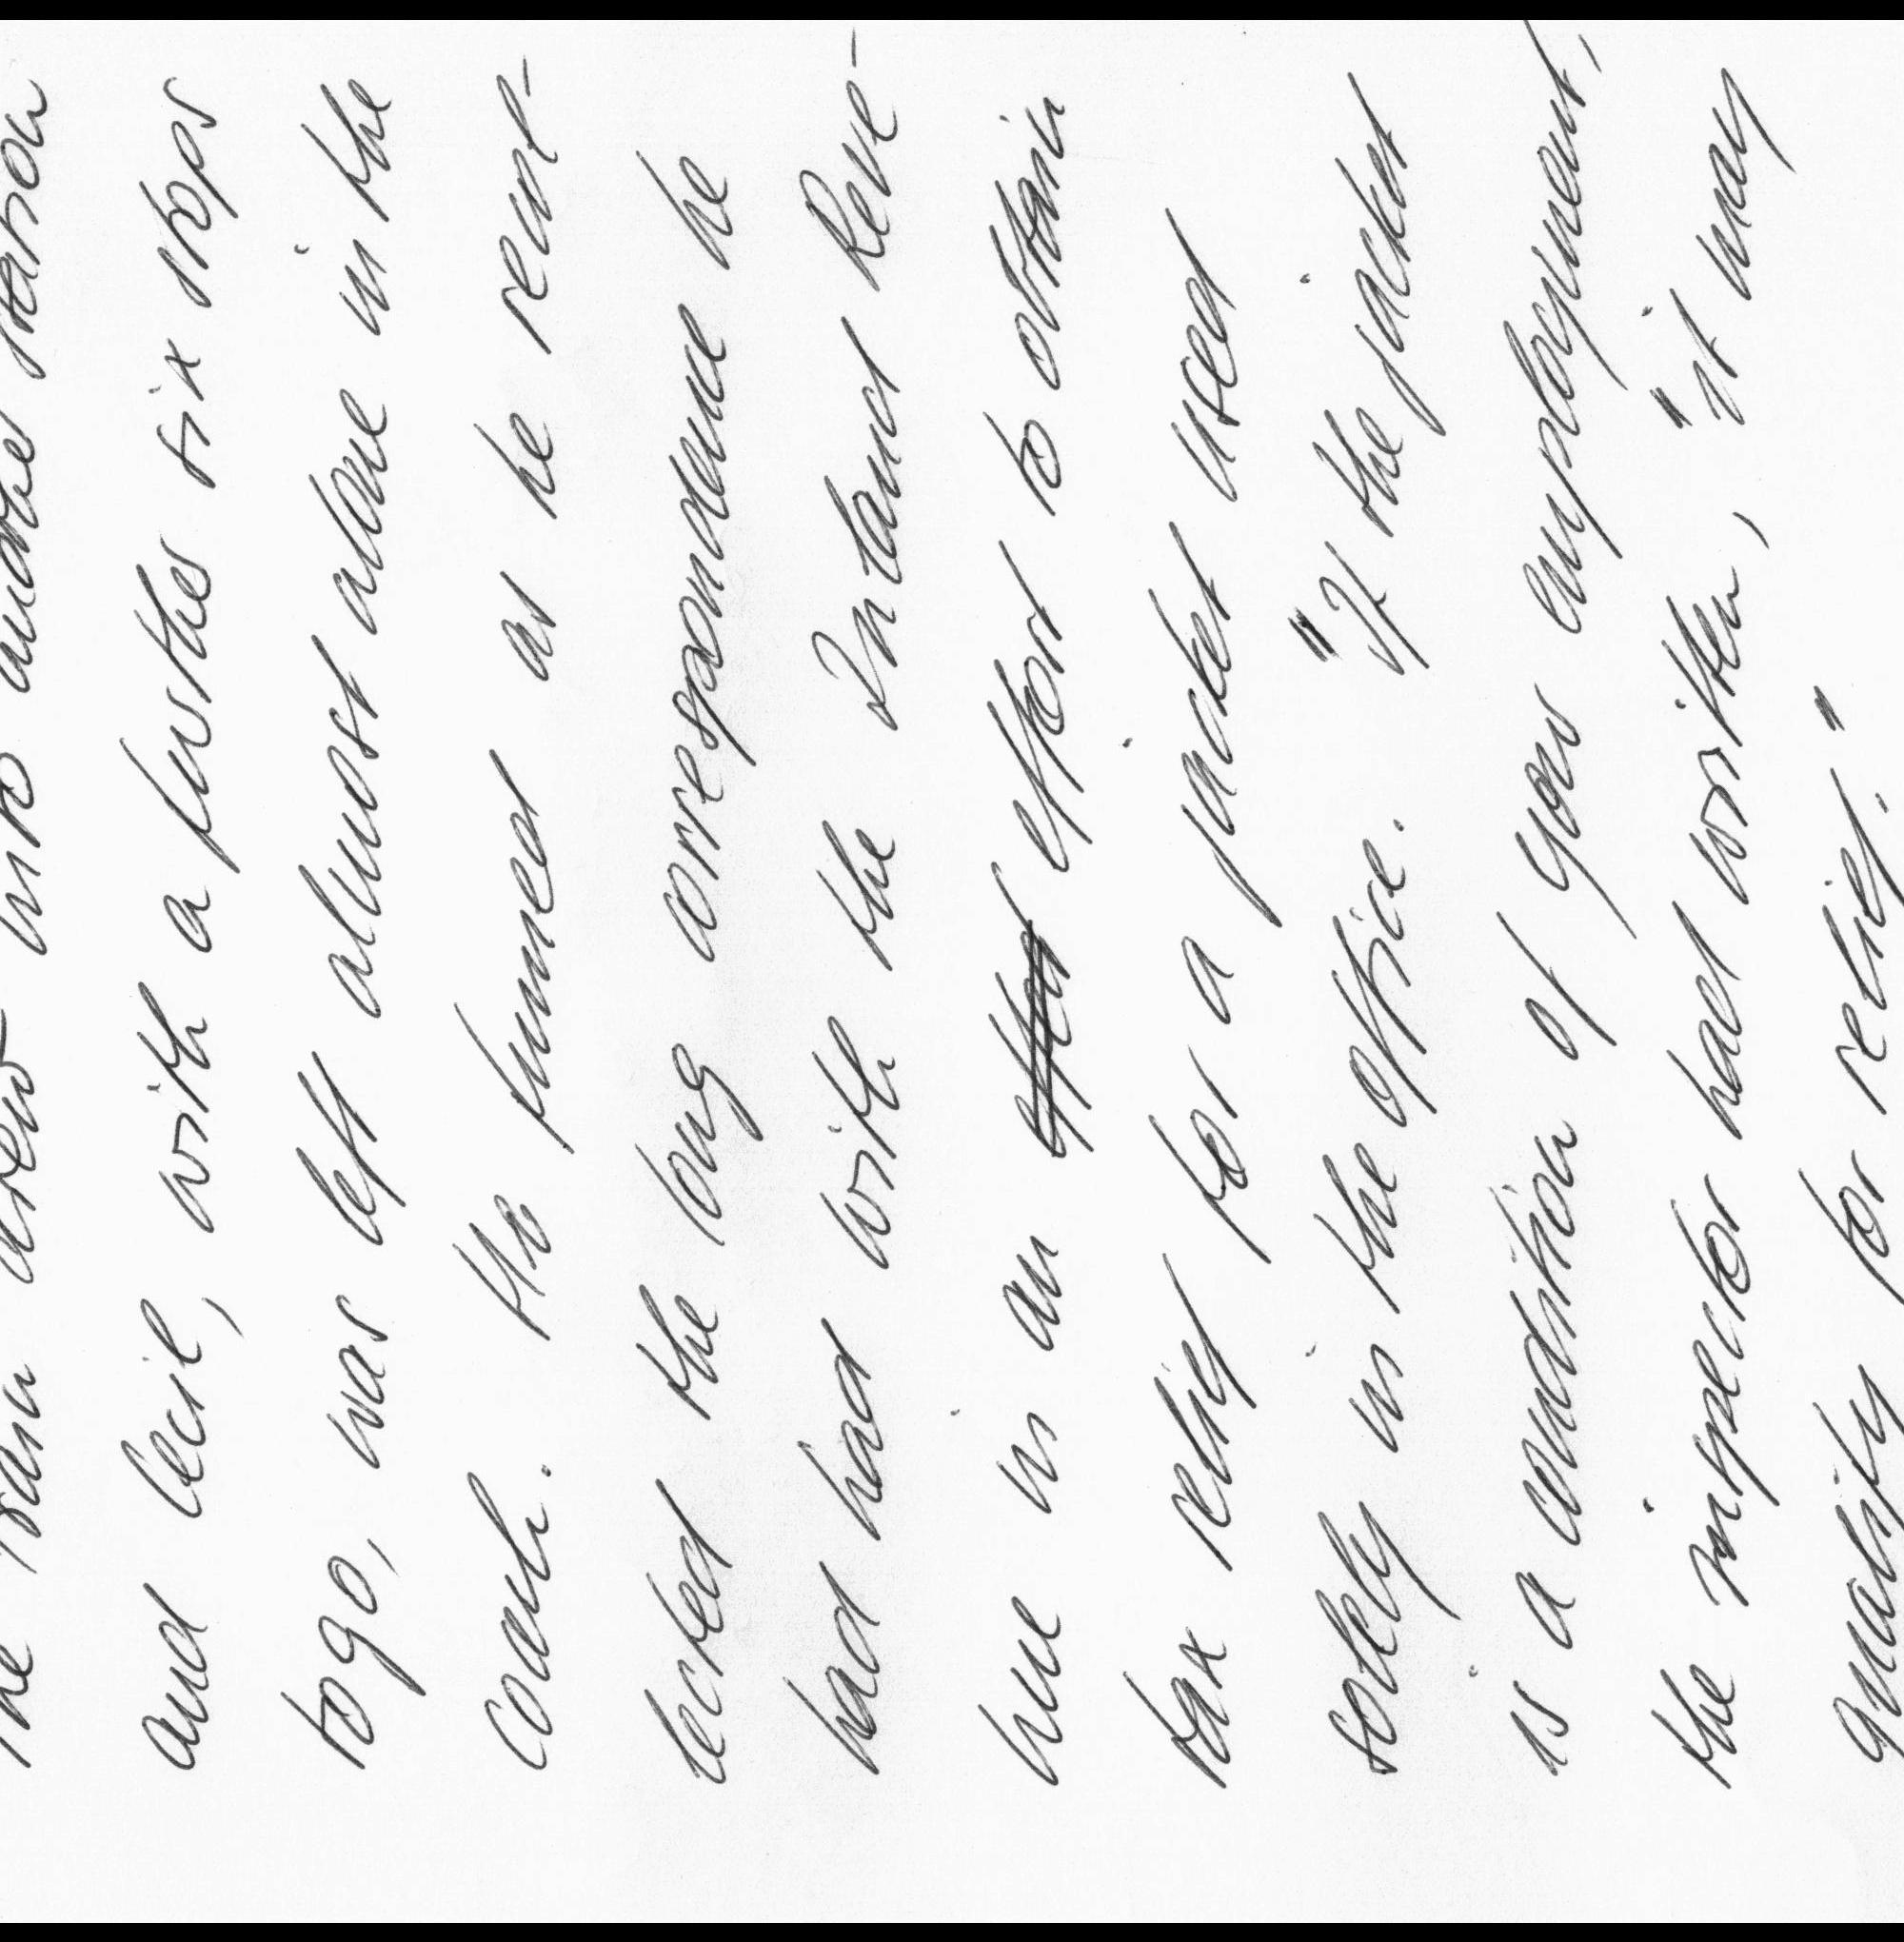 The train drew into another station
and Cecil, with a further six stops
to go, was left almost alone in the
coach. He turned as he recol-
lected the long correspondence he
had had with the Inland Reve-
nue in an effort to obtain
tax relief for a jacket used
solely in the office. "If the jacket
is a condition of your employment,
the inspector had written, "it may
qualify for relief."